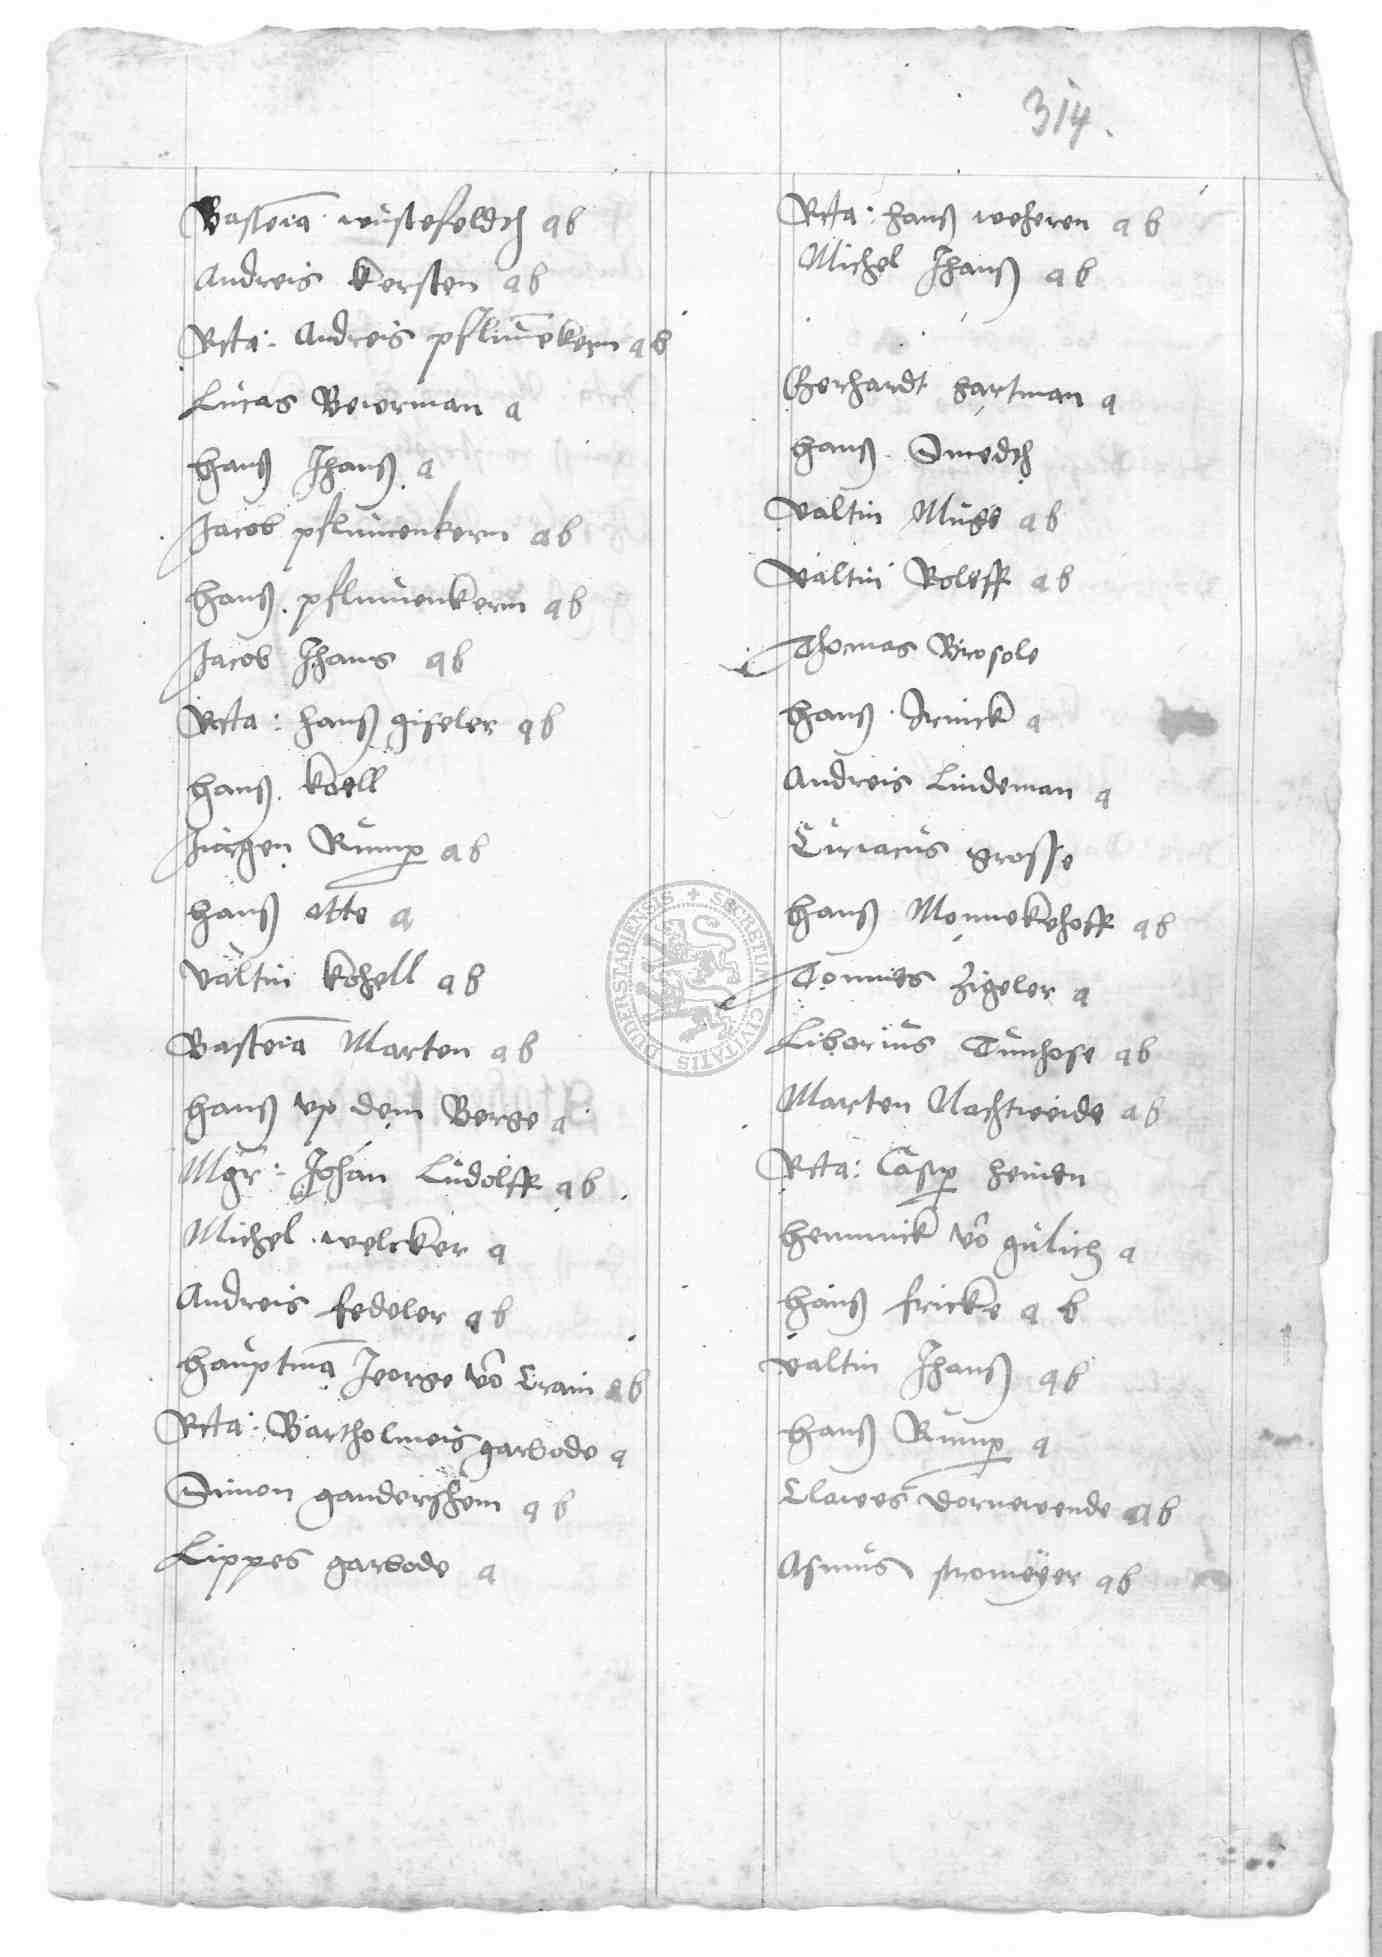 314.
Bastēia wüstefeldth ab
Andreis Kersten ab
Rcta: Andreis pflumēkern ab
Lucas Beierman a
Hanß Jhanß a
Jacob pflumenkern ab
Hanß pflumenkern ab
Jacob Jhans ab
Rcta: Hanß giseler ab
Hanß Koell
Jurgen Rump ab
Hanß otte a
Valtin Kohell ab
Bastēia Marten ab
Hanß up dem Berge a
Mgr: Johan Ludolff ab
Michel welcker a
Andreis fedeler ab
Hauptmā Jeorge vō Crain ab
Rcta: Bartholmeis garbode a
Simon gandershem ab
Lippes garbode a
Rcta: Hanß weheren ab
Michel Jhanß ab
Gherhardt Hartman a
Hanß Smedth
Valtin Muge ab
Valtin Roleff ab
Thomas Brosole
Hanß Arnick a
Andreis Lindeman a
Ciriacus grosse
Hanß Monnekehoff ab
Tonnies Zigeler a
Liborius Tunhose ab
Marten Nachtweide ab
Rcta: Casp Heinen
Hennick vō gulich a
Hanß fricke a b
Valtin Jhanß ab
Hanß Rump a
Clawes Dornewende ab
Asmus stromeyer ab
SECRETUM CIVITATIS DUDERSTADIENSIS